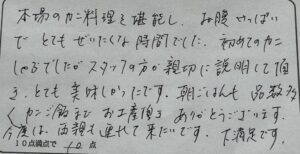 本場のカニ料理を堪能し、お腹いっぱい
で とてもぜいたくな時間でした。初めてのカニ
しゃぶでしたがスタッフの方が親切に説明して頂
き、とても美味しかったです。朝ごはんも 品数多
く、カニ飯まで お土産頂き ありがとうございます。
今度は、両親も連れて来たいです。大満足です。
10点満点で 10 点